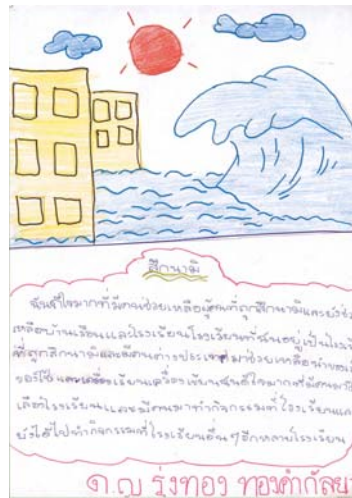 สึกนามิ
ฉันดีใจมากที่มีคนช่วยเหลือผู้คนที่ถูกสึกนามิและยังช่วย
เหลือบ้านเรือนและโรงเรียนโรงเรียนที่ฉันอยู่เป็นโรงเรี
ที่ถูกสึกนามิและมีคนต่างประเทศมาช่วยเหลือนำของ
ของใช้และเครื่องเรียนเครื่องเขียนฉันดีใจมากที่มีคนมาช
เลือโรงเรียนและมีคนมาทำกิจกรรมที่โรงเรียนและ
ยังได้ไปทำกิจกรรมที่โรงเรียนอื่นๆอีกหลายโรงเรียน
ด.ญ รุ่งทอง ทองคำกัลยา